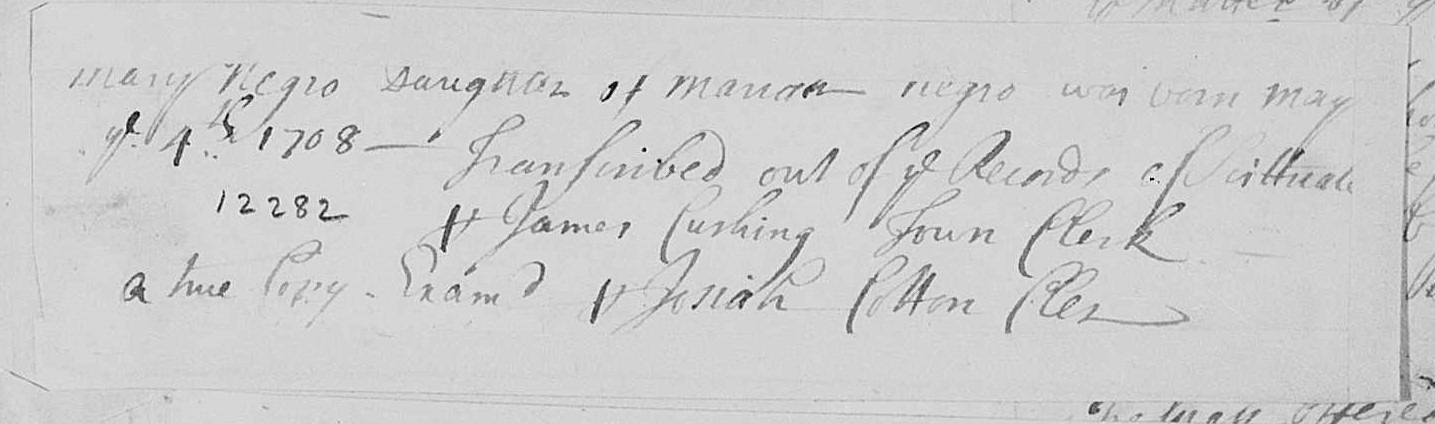 mary Negro Daughter of negro was born may
ye. 4th. 1708 — Transcribed out of ye Records of Scittuate
12282 pr James Cushing Town Clerk
a true Copy. Examd pr Josiah Cotton Cler